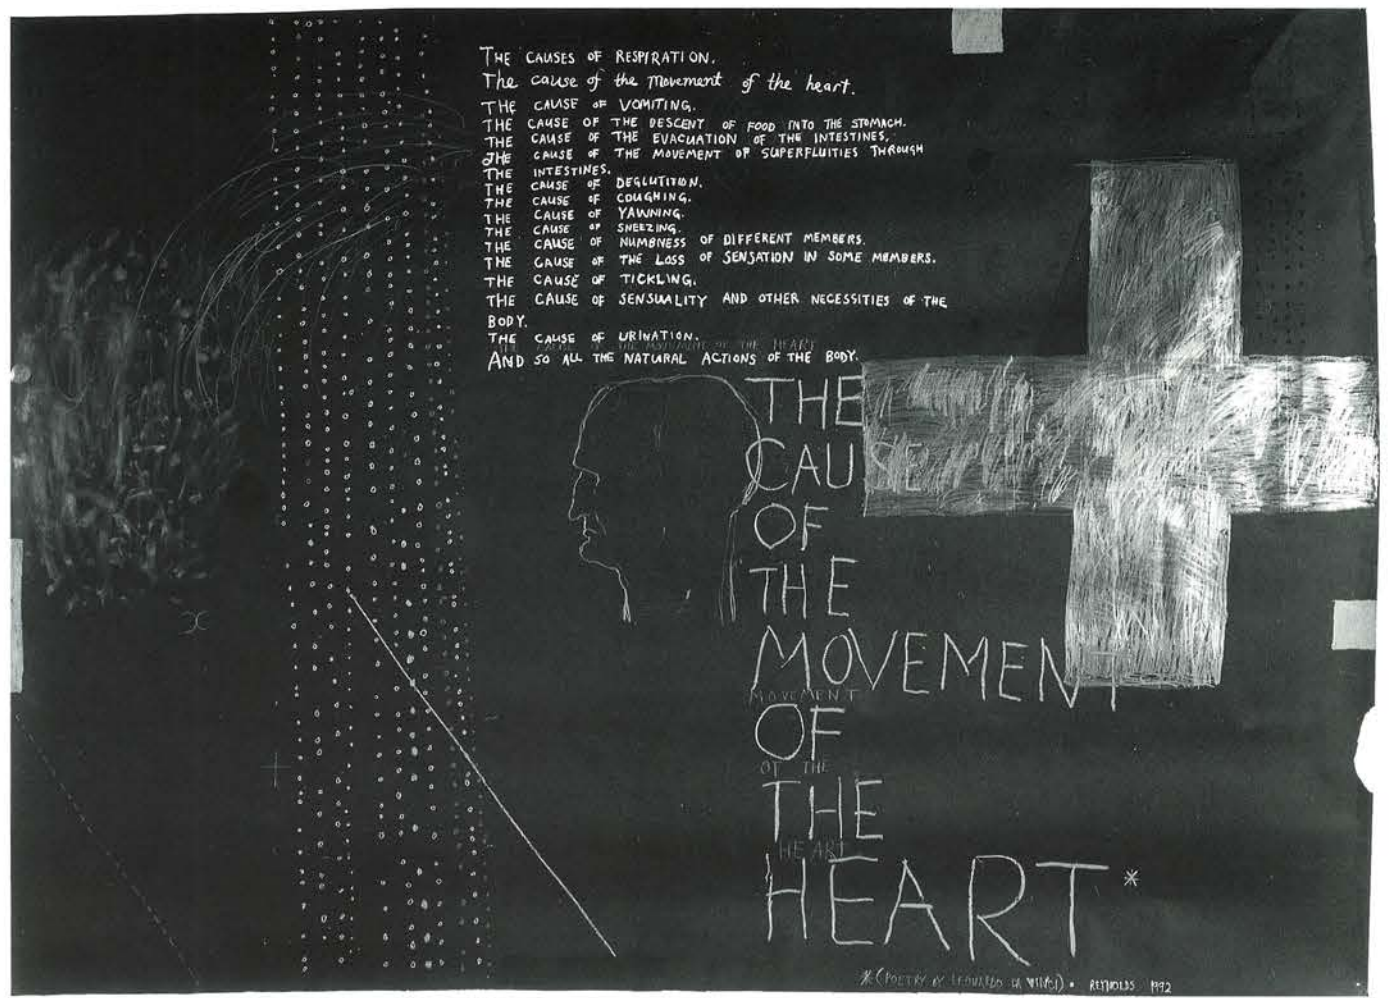 THE CAUSES OF RESPIRATION.
The cause of the movement of the heart.
THE CAUSE OF VOMITING.
THE CAUSE OF THE DESCENT OF FOOD INTO THE STOMACH.
THE CAUSE OF THE EVACUATION OF THE INTESTINES.
THE CAUSE OF THE MOVEMENT OF SUPERFLUITIES THROUGH
THE INTESTINES.
THE CAUSE OF DEGLUTITION.
THE CAUSE OF COUGHING.
THE CAUSE OF YAWNING.
THE CAUSE OF SNEEZING.
THE CAUSE OF NUMBNESS OF DIFFERENT MEMBERS.
THE CAUSE OF THE LOSS OF SENSATION IN SOME MEMBERS.
THE CAUSE OF TICKLING.
THE CAUSE OF SENSUALITY AND OTHER NECESSITIES OF THE
BODY.
THE CAUSE OF URINATION.
THE MOVEMENT OF THE HEART
AND SO ALL THE NATURAL ACTIONS OF THE BODY.
THE
CAUSE
OF
THE
MOVEMENT
MOVEMENT
OF
OF THE
THE
HEART
HEART*
*(POETRY BY LEONARDO DA VINCI). REYNOLDS 1992